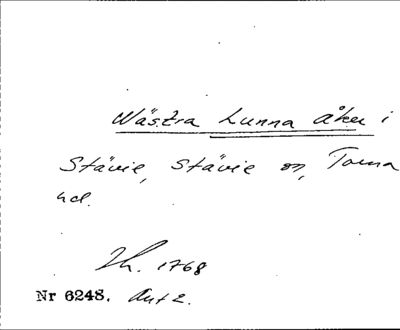 Wästra Lunna åker i
Stävie, Stävie sn, Torna
hd.
Th. 1768
Nr 6248. Ant 2.